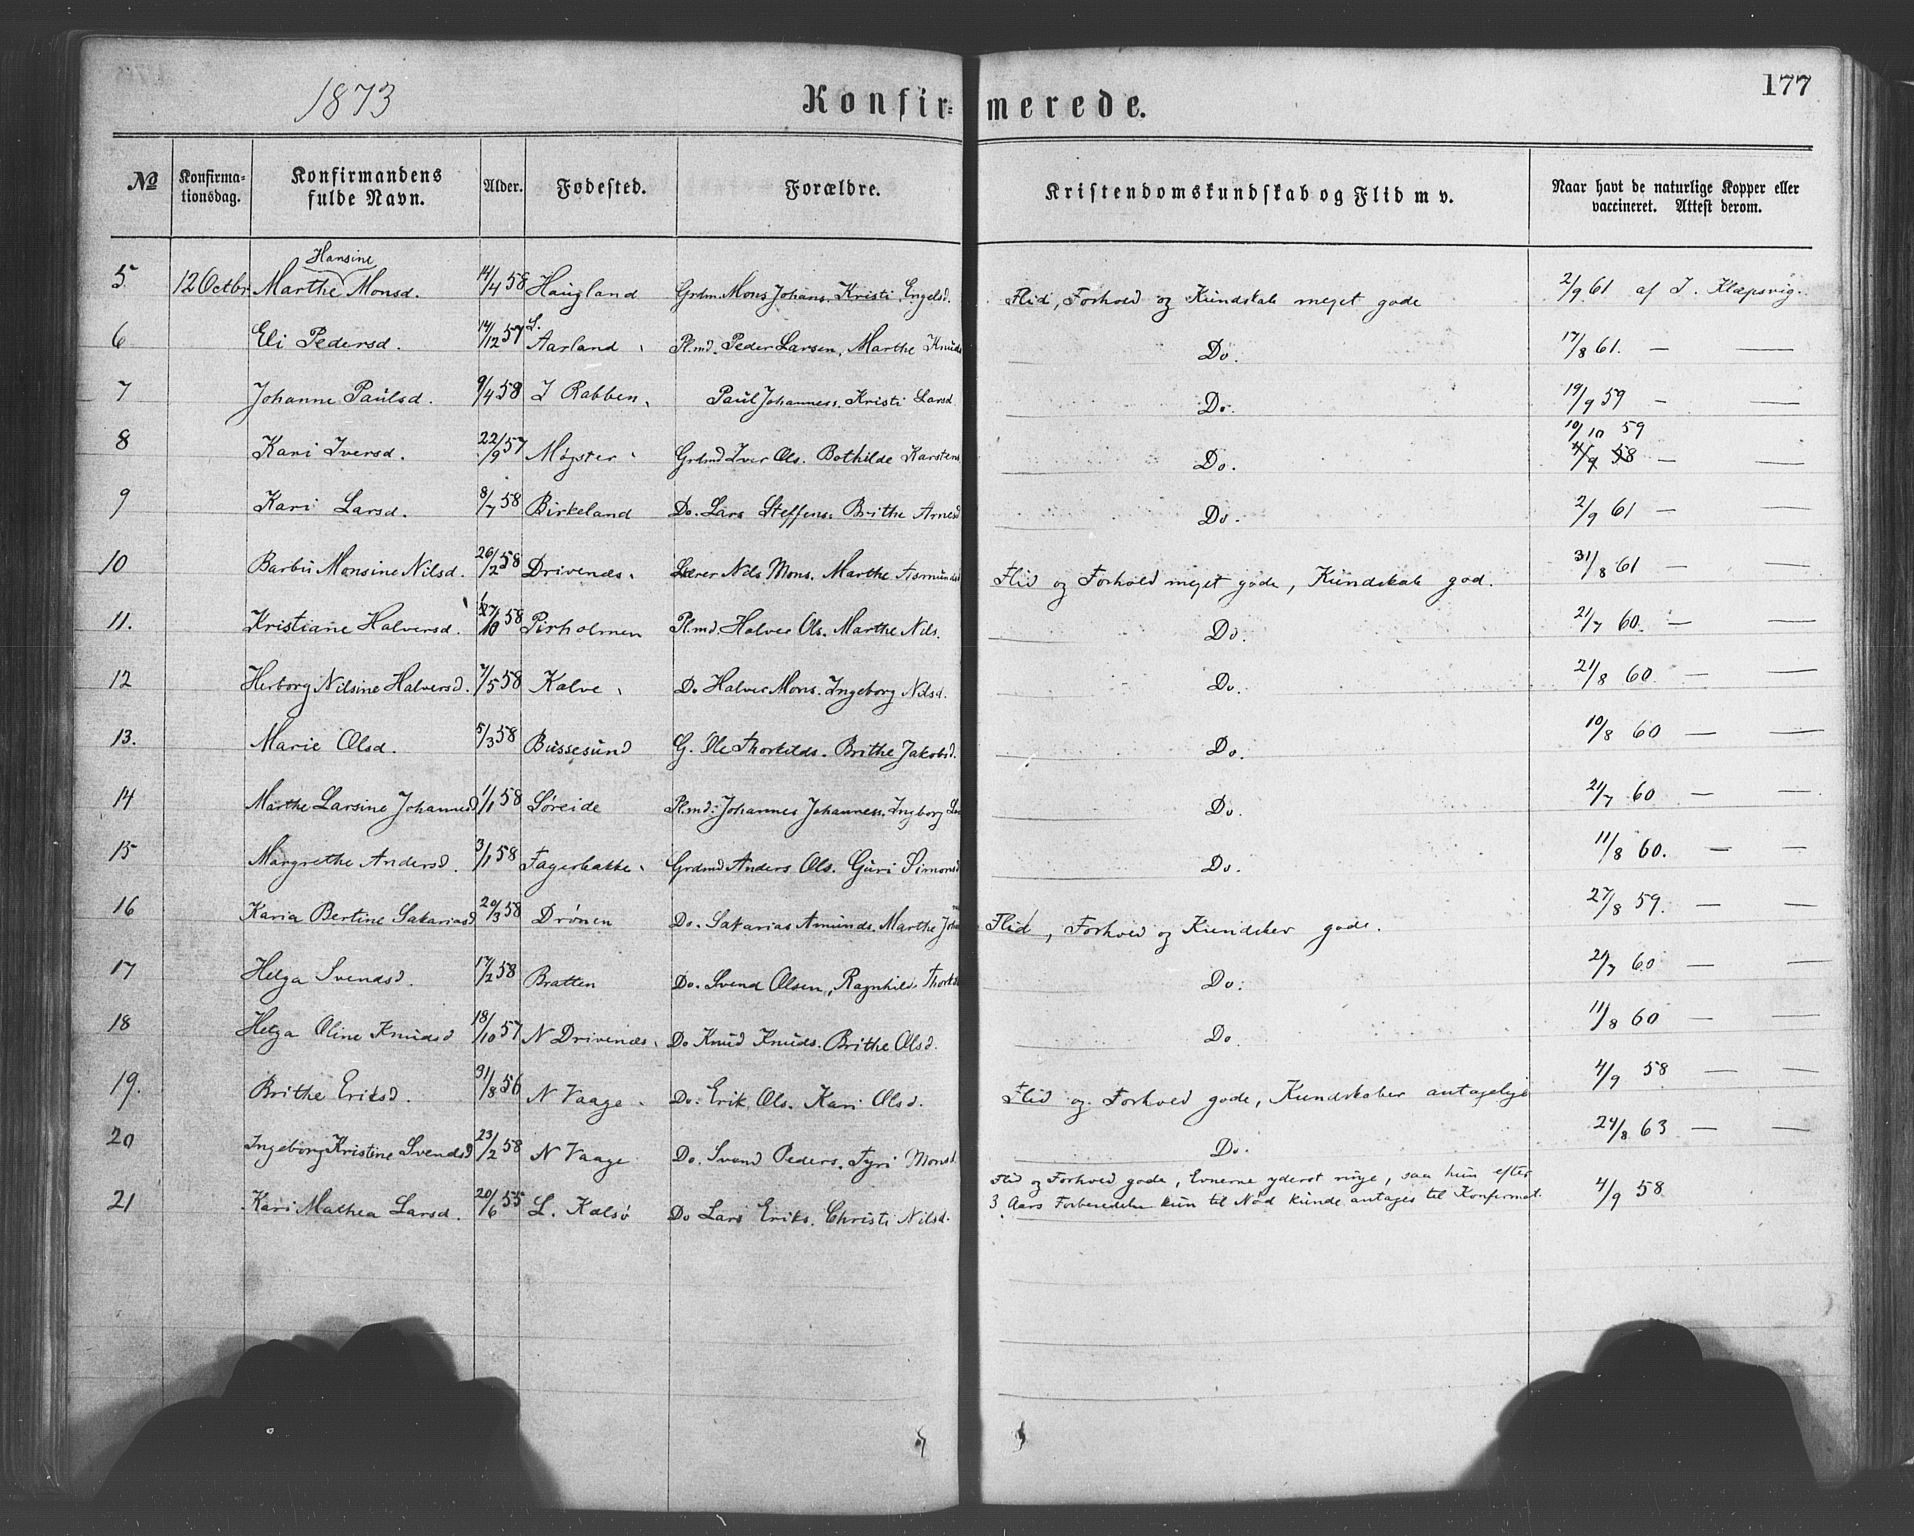 1873
Konfirmerede.
177
No
Konfirmationsdag.
Konfirmandens fulde Navn.
Alder.
Fødested.
Forældre.
Kristendomskundskab og Flid m v.
Naar havt de naturlige Kopper eller vaccineret. Attest derom.
Hansine
5 12 Octbr Marthe Monsd. 14/4 58 Haugland Grdm. Mons Johans. Kristi Engelsd. Flid, Forhold og Kundskab meget gode 2/9 61 af J. Klepsvig.
6 Eli Pedersd. 14/12 57 L. Aarland Pl.md. Peder Larsen, Marthe Knuds Do. 17/8 61. — —
7 Johanne Paulsd. 9/4 58 I Rabben Paul Johanness. Kristi Larsd Do. 19/9 59 — —
10/10 59
8 Kari Iversd. 22/9 57 Møgster Grdmd Iver Ols. Bothilde Karstens Do. 4/9 58 — —
9 Kari Larsd. 8/7 58 Birkeland Do. Lars Steffens. Brithe Arnesd Do. 2/9 61 — —
10 Barbu Monsine Nilsd. 26/2 58 Drivenæs. Lærer Nils Mons. Marthe Asmundsd Flid og Forhold meget gode, Kundskab god. 31/8 61 — —
11. Kristiane Halversd. /10 58 Perholmen Pl.md. Halver Ols. Marthe Nils. Do. 21/7 60. — —
12 Herborg Nilsine Halversd. 7/5 58 Kalve Do Halver Mons. Ingeborg Nilsd. Do. 21/8 60. — —
13. Marie Olsd. 5/3 58 Bussesund G. Ole Thorkilds. Brithe Jakobsd. Do. 10/8 60 — —
14 Marthe Larsine Johannesd 1/1 58 Søreide Pl.md: Johannes Johanness. Ingborg La Do. 21/7 60 — —
15 Margrethe Andersd. 3/1 58 Fagerbakke Grdmd Anders Ols. Guri Simonsd Do. 11/8 60. — —
16 Karia Bertine Sakariasd 20/3 58 Drønen Do. Sakarias Amunds. Marthe Joha Flid, Forhold og Kundskab gode. 27/8 59. — —
17 Helga Svendsd. 17/2 58 Bratten Do. Svend Olsen, Ragnhild Thorks Do. 21/7 60 — —
18 Helga Oline Knudsd 18/10 57 N Drivenæs. Do Knud Knuds. Brithe Olsd. Do. 11/8 60 — —
19. Brithe Eriksd. 31/8 56 N Vaage Do. Erik Ols. Kari Olsd. Flid og Forhold gode, Kundskaber antagelige 4/9 58 — —
20 Ingeborg Kristine Svendsd 23/2 58 N Vaage Do. Svend Peders. Tyri Monsd. Do. 24/8 63 — —
Flid og Forhold gode, Evnerne yderst ringe, saa hun efter
21 Kari Mathea Larsd. 20/6 55 L. Kalsø Do Lars Eriks. Christi Nilsd. 3 Aars Forberedelse kun til Nød kunde antages til Konfirmat. 4/9 58